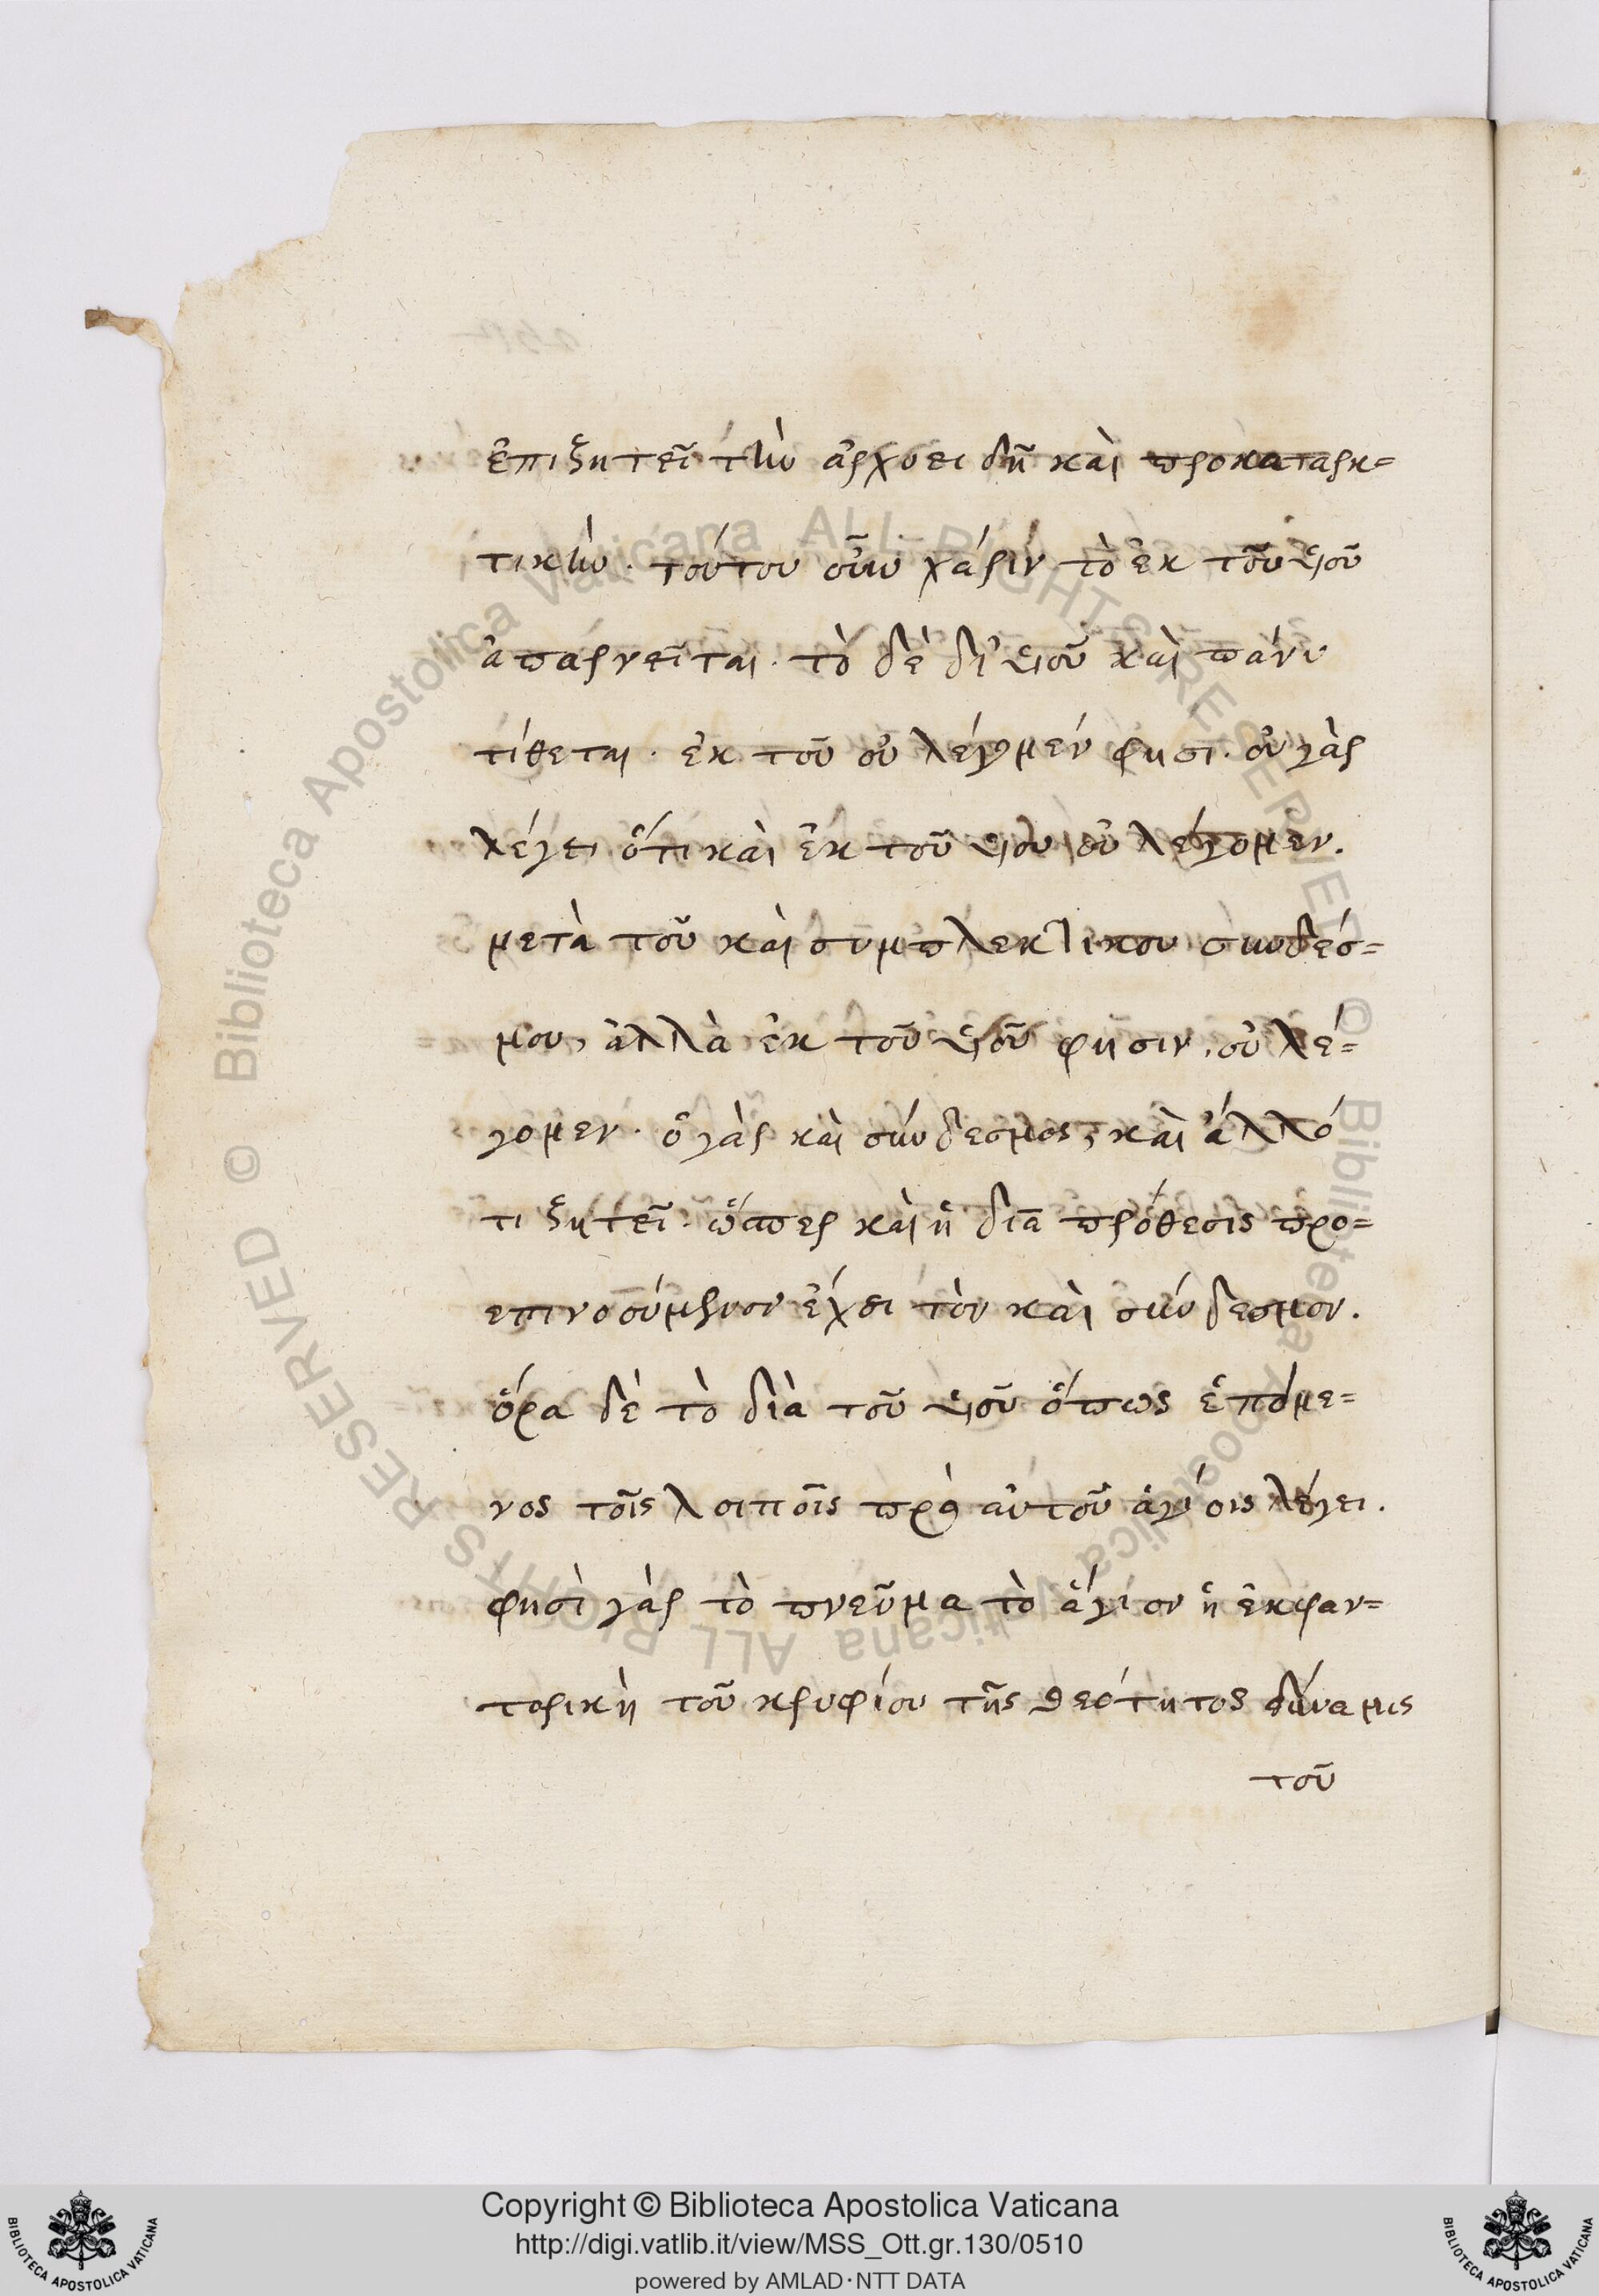 ἐπιζητεῖ τὴν ἀρχοει δῆ καὶ προκαταρκ=
τικὴν. τούτου οὖν χάριν τὸ ἐκ τοῦ υἱοῦ
ἀπαρνεῖται. τὸ δὲ δι' υἱοῦ καὶ πάνυ
τίθεται. ἐκ τοῦ οὐ λέγομέν φησι. οὐ γὰρ
λέγει ὅτι καὶ ἐκ τοῦ υἱοῦ οὐ λέγομεν.
μετὰ τοῦ καὶ συμπλεκτικου συνδέσ=
μου, ἀλλὰ ἐκ τοῦ υἱοῦ φησιν. οὐ λέ=
γομεν. ὁ γὰρ καὶ σύνδεσμος, καὶ ἄλλό
τι ζητεῖ. ὥσπερ καὶ ἡ διὰ πρόθεσις προ=
επινοούμενον ἔχει τὸν καὶ σύνδεσμον.
ὅρα δὲ τὸ διὰ τοῦ υἱοῦ ὅπως ἑπόμε=
νος τοῖς λοιποῖς πρὸ αὐτοῦ ἁγίοις λέγει.
φησὶ γὰρ τὸ πνεῦμα τὸ ἅγιον ἡ ἐκφαν=
τορικὴ τοῦ κρυφίου τῆς θεότητος δύναμις
τοῦ
Copyright © Biblioteca Apostolica Vaticana
http://digi.vatlib.it/view/MSS_Ott.gr.130/0510
powered by AMLAD·NTT DATA